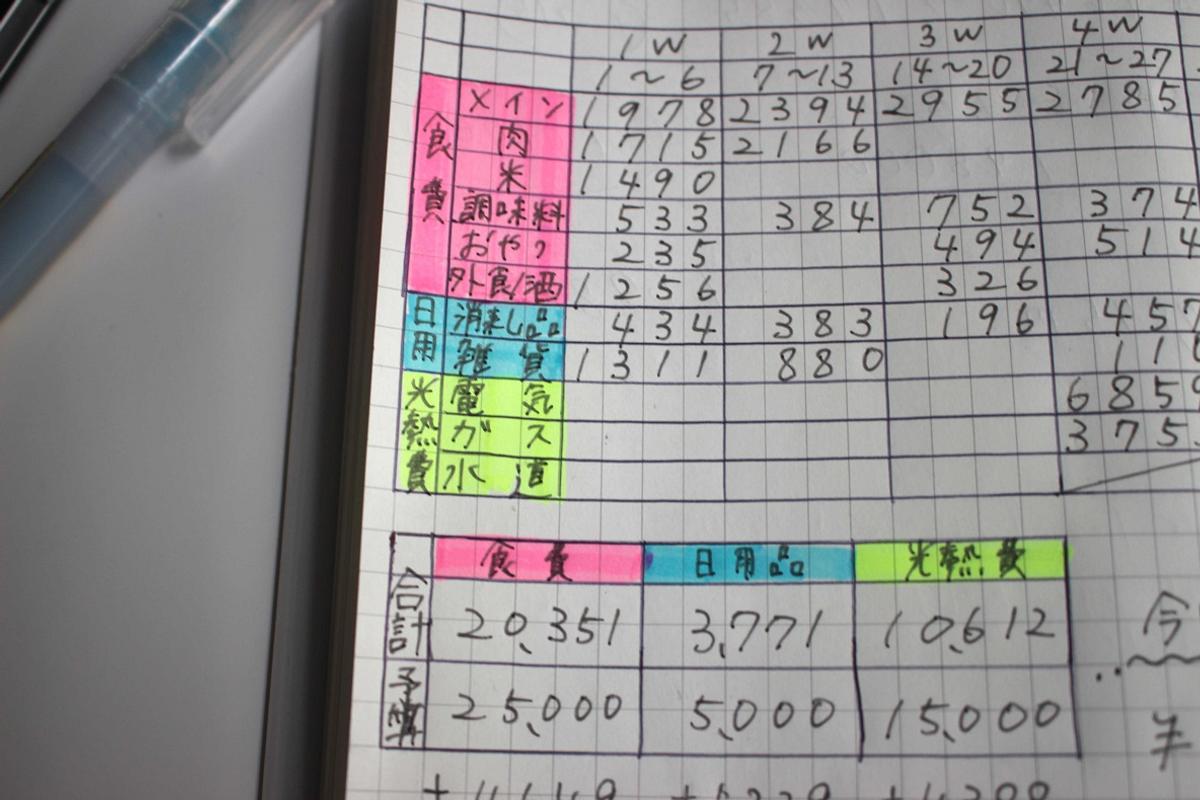 1W 2W 3W 4W
1~6 7~13 14~20 21~27
食費
メイン 1978 2394 2955 2785
肉 1715 2166
米 1490
調味料 533 384 752 374
おやつ 235 494 514
外食/酒 1256 326
日用
消耗品 434 383 196 457
雑貨 1311 880
光熱費
電気
ガス
水道
食費 日用品 光熱費
合計 20,351 3,771 10,612
予算 25,000 5,000 15,000
今